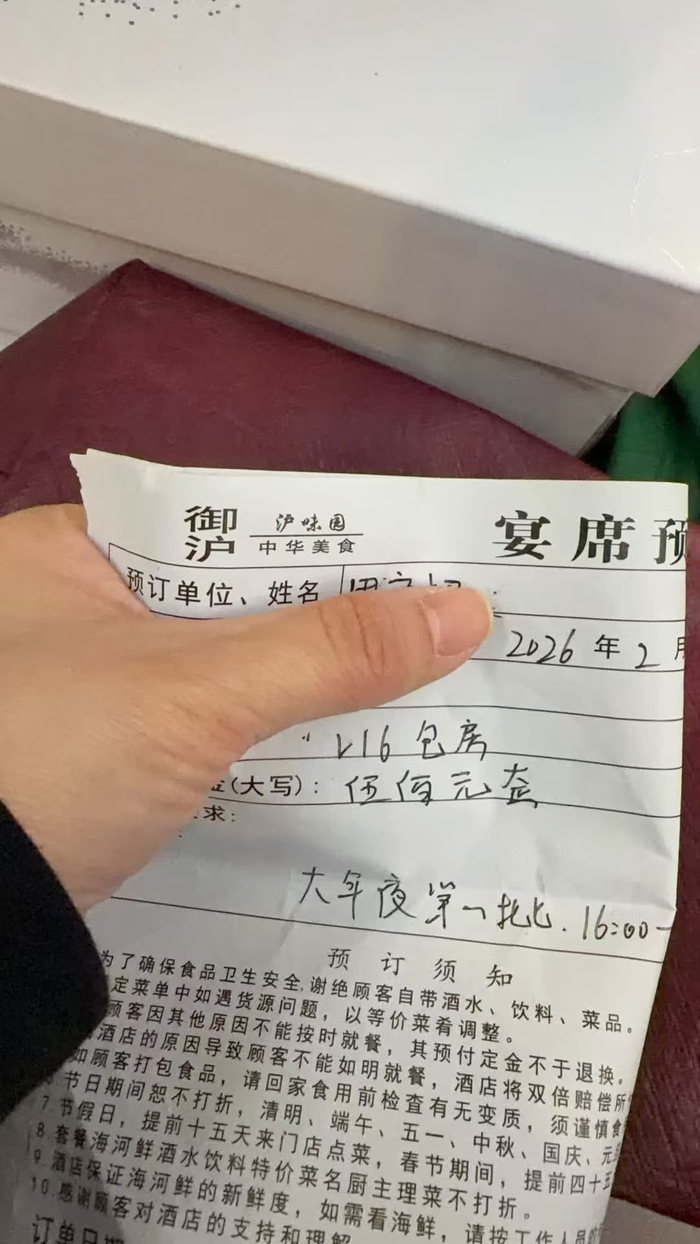 御沪 沪味园 中华美食
宴席预
预订单位、姓名
2026年2月
V16包房
金(大写):伍佰元整
求:
大年夜第一批.16:00-
预订须知
为了确保食品卫生安全,谢绝顾客自带酒水、饮料、菜品。
定菜单中如遇货源问题,以等价菜肴调整。
顾客因其他原因不能按时就餐,其预付定金不于退换。
酒店的原因导致顾客不能如明就餐,酒店将双倍赔偿所
如顾客打包食品,请回家食用前检查有无变质,须谨慎食
6.节日期间恕不打折,清明、端午、五一、中秋、国庆、元旦
7.节假日,提前十五天来门店点菜,春节期间,提前四十五
8.套餐海河鲜酒水饮料特价菜名厨主理菜不打折。
9.酒店保证海河鲜的新鲜度,如需看海鲜,请按工作人员的
10.感谢顾客对酒店的支持和理解
订单日期